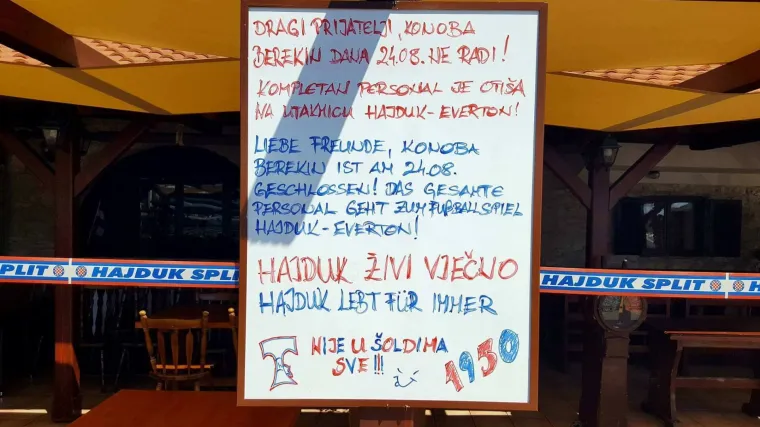 DRAGI PRIJATELJI, KONOBA
BEREKIN DANA 24.08. NE RADI!
KOMPLETAN PERSONAL JE OTIŠA
NA UTAKMICU HAJDUK-EVERTON!
LIEBE FREUNDE, KONOBA
BEREKIN IST AM 24.08.
GESCHLOSSEN! DAS GESAMTE
PERSONAL GEHT ZUM FUßBALLSPIEL
HAJDUK-EVERTON!
HAJDUK ŽIVI VJEČNO
HAJDUK LEBT FÜR IMMER
NIJE U ŠOLDIMA
SVE!!!
1950
SPLIT HAJDUK SPLIT
HAJDUK SPLIT